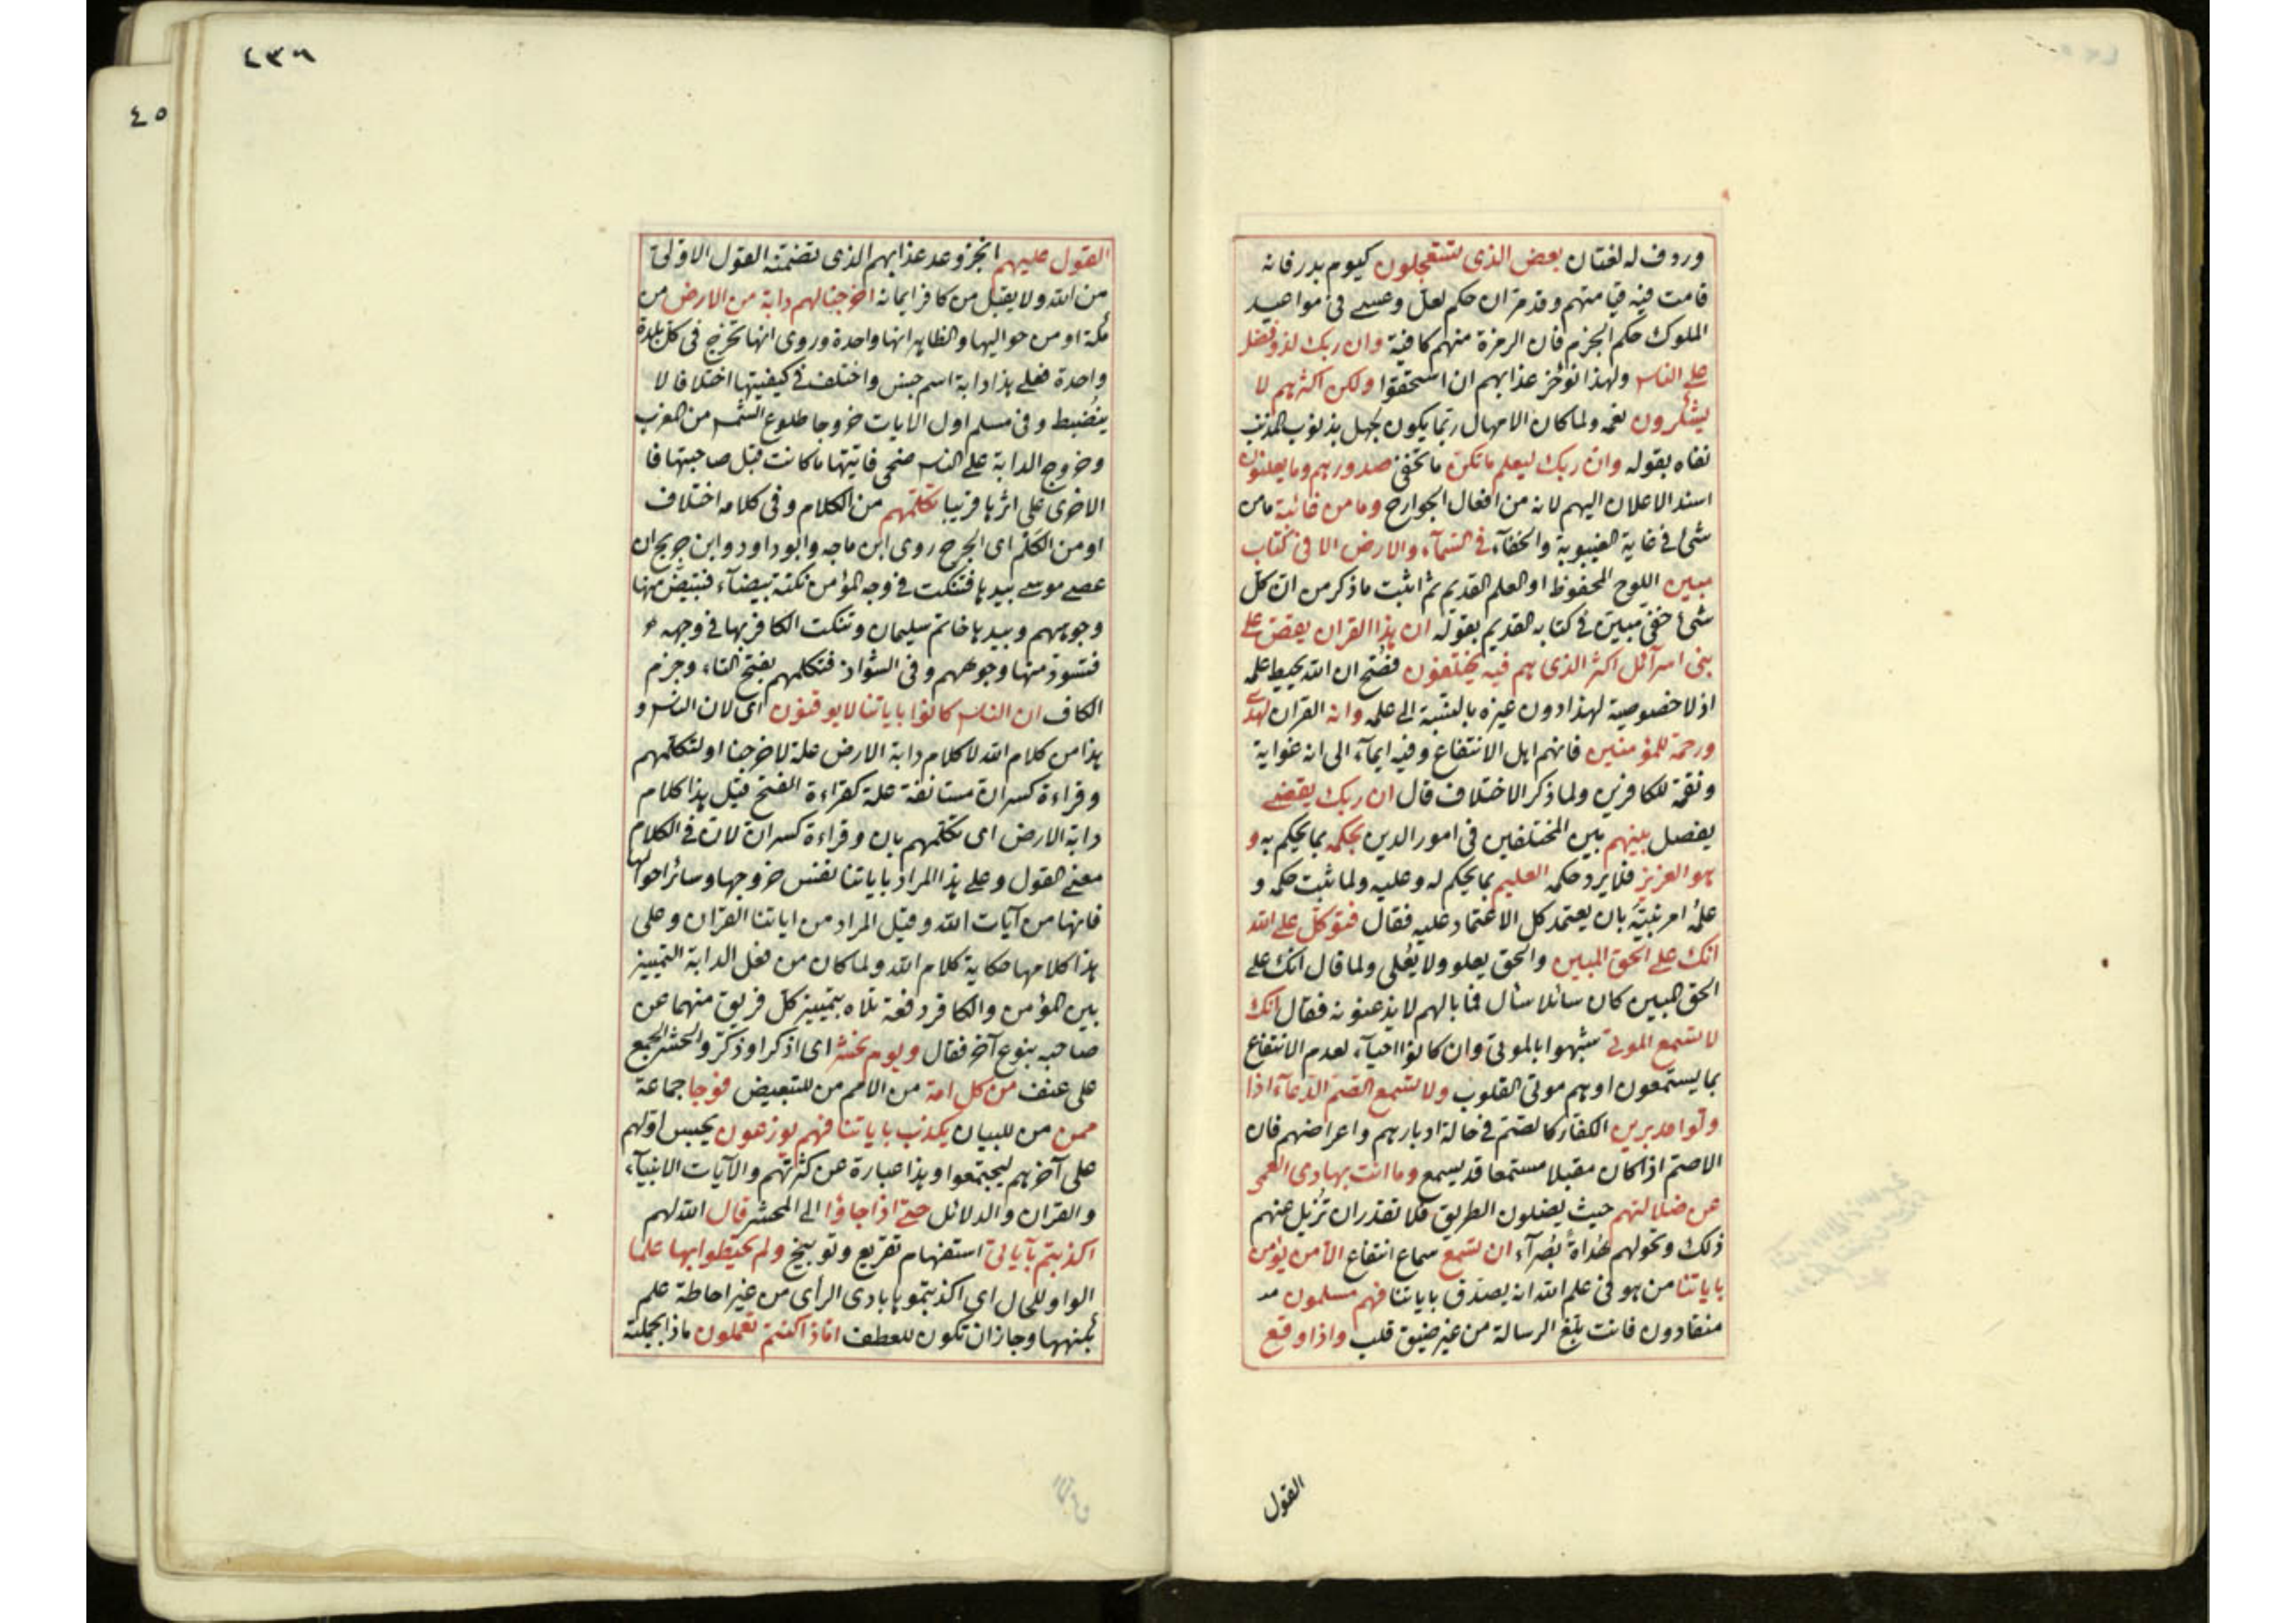 وردف له لغتان بعض الذى تستعجلون كيوم بدر فانه
قامت فيه قيامتهم وقد مر ان حكم لعل وعسى فى مواعيد
الملوك حكم الجزم فان الرمزة منهم كافية وان ربك لذو فضل
على الناس ولهذا نؤخر عذابهم ان استحقوا ولكن اكثرهم لا
يشكرون نعمه ولما كان الامهال ربما يكون بجهل بذنوب المذنب
نفاه بقوله وان ربك ليعلم ما تكن ما تخفى صدورهم وما يعلنون
اسند الاعلان اليهم لانه من افعال الجوارح وما من غائبة ما من
شئ فى غاية الغيبوبة والخفآء فى السمآء والارض الا فى كتاب
مبين اللوح المحفوظ او العلم القديم ثم اثبت ما ذكر من ان كل
شئ خفى مبين فى كتابه القديم بقوله ان هذا القران يقص على
بنى اسرآئل اكثر الذى هم فيه يختلفون فصح ان الله يحيط علمه
اذ لا خصوصية لهذا دون غيره بالنسبة الى علمه وانه القران لهدى
ورحمة للمؤمنين فانهم اهل الانتفاع وفيه ايمآء الى انه غواية
ونقمة للكافرين ولما ذكر الاختلاف قال ان ربك يقضى
يفصل بينهم بين المختلفين فى امور الدين بحكمه بما يحكم به و
هو العزيز فلا يرد حكمه العليم بما يحكم له وعليه ولما ثبت حكمه و
علمه امر نبيه بان يعتمد كل الاعتماد عليه فقال فتوكل على الله
انك على الحق المبين والحق يعلو ولا يعلى ولما قال انك على
الحق المبين كان سائلا سأل فما بالهم لا يذعنونه فقال انك
لا تسمع الموتى شبهوا بالموتى وان كانوا احيآء لعدم الانتفاع
بما يستمعون او هم موتى القلوب ولا تسمع الصم الدعآء اذا
ولوا مدبرين الكفار كالصم فى حالة ادبارهم واعراضهم فان
الاصم اذا كان مقبلا مستمعا قد يسمع وما انت بهادى العمى
عن ضلالتهم حيث يضلون الطريق فلا تقدر ان تزيل عنهم
ذلك وتحولهم هداة بصرآء ان تسمع سماع انتفاع الا من يؤمن
باياتنا من هو فى علم الله انه يصدق باياتنا فهم مسلمون
منقادون فانت بلغ الرسالة من غير ضيق قلب واذا وقع
القول
٤٣٦
٤٥
القول عليهم انجز وعد عذابهم الذى تضمنه القول الاولى
من الله ولا يقبل من كافر ايمانه اخرجنا لهم دابة من الارض من
مكة او من حواليها والظاهر انها واحدة وروى انها تخرج فى كل بلدة
واحدة فعلى هذا دابة اسم جنس واختلف فى كيفيتها اختلافا لا
ينضبط وفى مسلم اول الايات خروجا طلوع الشمس من المغرب
وخروج الدابة على الناس ضحى فايتها ما كانت قبل صاحبتها فا
الاخرى على اثرها قريبا تكلمهم من الكلام وفى كلامه اختلاف
او من الكلم اى الجرح روى ابن ماجه وابو داود وابن جريج ان
عصى موسى بيدها فتنكت فى وجه المؤمن نكتة بيضآء فتبيض منها
وجوههم وبيدها خاتم سليمان وتنكت الكافر بها فى وجهه
فتسود منها وجوههم وفى الشواذ فتكلمهم بفتح التاء وجزم
الكاف ان الناس كانوا باياتنا لا يوقنون اى لان الناس و
هذا من كلام الله لا كلام دابة الارض علة لاخرجنا او لتكلمهم
وقراءة كسر ان مستانفة علة كقراءة الفتح قيل هذا كلام
دابة الارض اى تكلمهم بان وقراءة كسر ان لان فى الكلام
معنى القول وعلى هذا المراد باياتنا نفس خروجها وسائر احوالها
فانها من آيات الله وقيل المراد من اياتنا القران وعلى
هذا كلامها حكاية كلام الله ولما كان من فعل الدابة التمييز
بين المؤمن والكافر دفعة تلاه بتمييز كل فريق منهما عن
صاحبه بنوع آخر فقال ويوم نحشر اى اذكر او ذكر والحشر الجمع
على عنف من كل امة من الامم من للتبعيض فوجا جماعة
ممن من للبيان يكذب باياتنا فهم يوزعون يحبس اولهم
على آخرهم ليجتمعوا وهذا عبارة عن كثرتهم والآيات الانبيآء
والقران والدلائل حتى اذا جاؤا الى المحشر قال الله لهم
اكذبتم بآياتى استفهام تقريع وتوبيخ ولم تحيطوا بها علما
الواو للحال اي اكذبتموها بادى الراى من غير احاطة علم
بكنهها وجاز ان تكون للعطف اما ذا كنتم تعملون ماذا